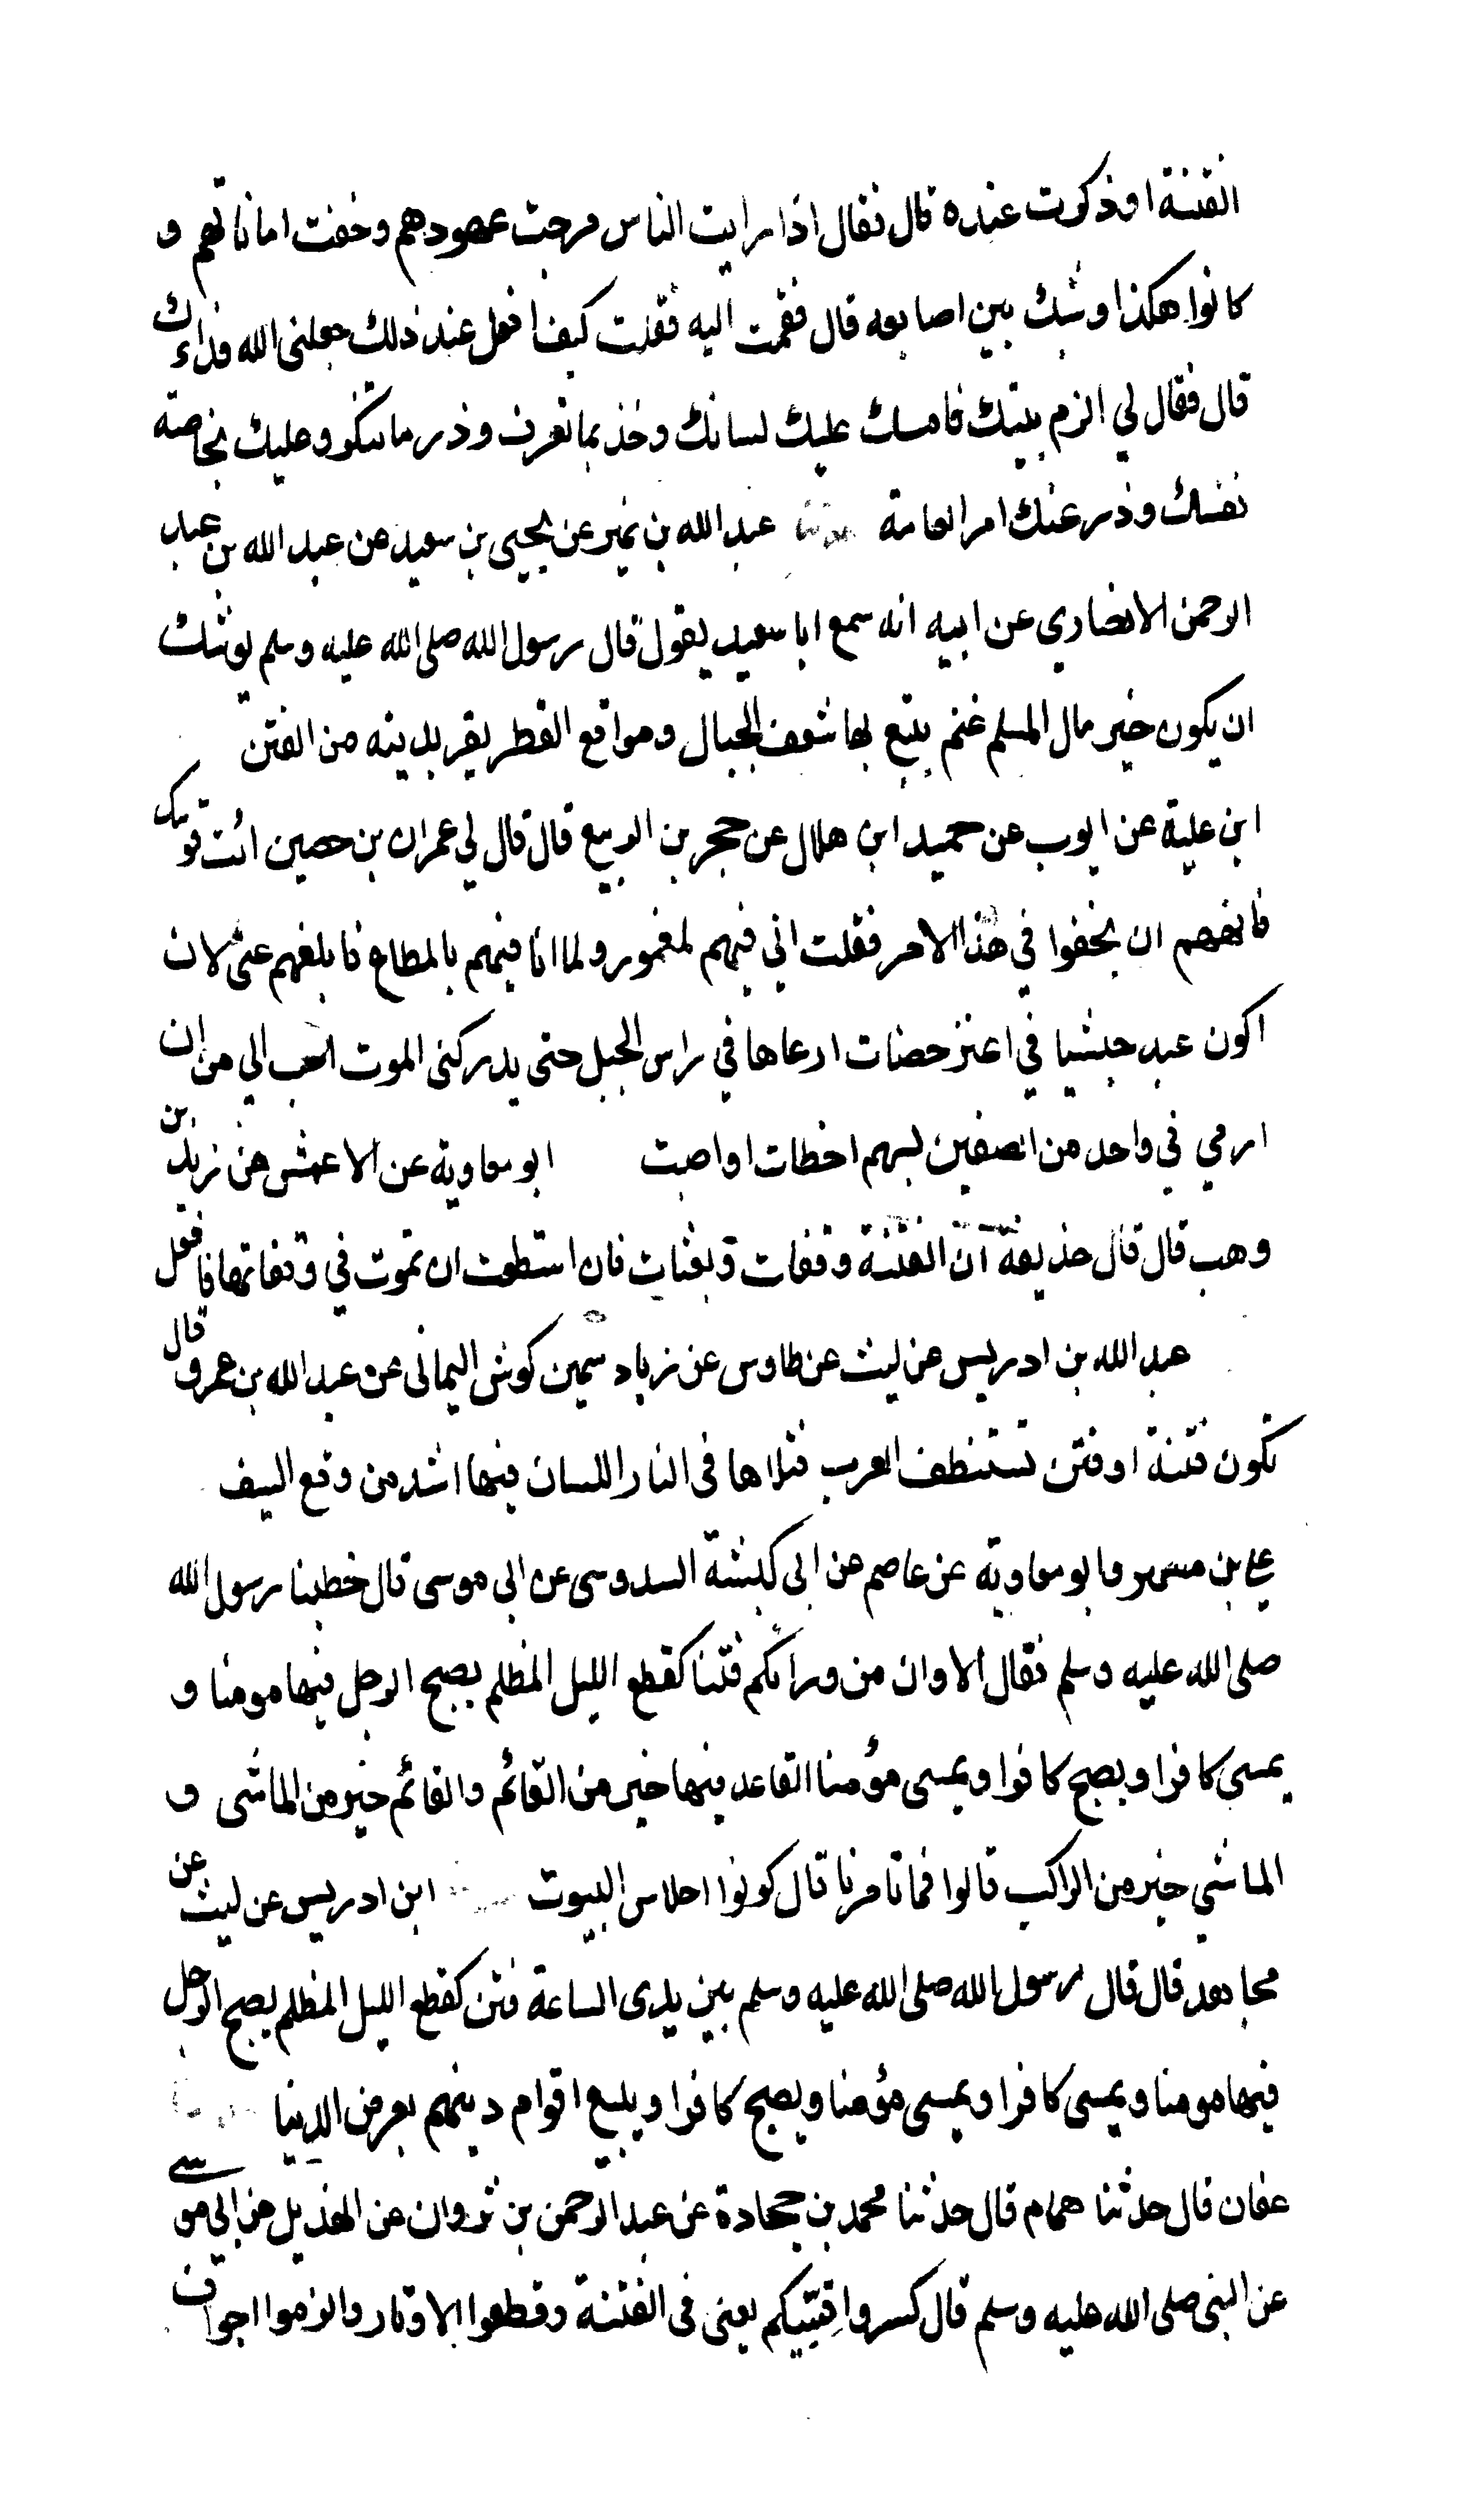 الفتنة او ذكرت عنده قال فقال اذا رايت الناس مرجت عهودهم وخفت اماناتهم و
كانوا هكذا وشبك بين اصابعه قال فقمت اليه فقلت كيف افعل عند ذلك جعلني الله فداءك
قال فقال لي الزم بيتك فامسك عليك لسانك وخذ بما تعرف وذر ما تنكر وعليك بخاصة
نفسك وذر عنك امر العامة عبد الله بن نمير عن يحيى بن سعيد عن عبد الله بن عبد
الرحمن الانصاري عن ابيه انه سمع ابا سعيد يقول قال رسول الله صلى الله عليه وسلم يوشك
ان يكون خير مال المسلم غنم يتبع بها شعف الجبال ومواقع القطر يفر بدينه من الفتن
ابن علية عن ايوب عن حميد ابن هلال عن حجر بن الربيع قال قال لي عمران بن حصين ائت قومك
فانههم ان يخفوا في هذا الامر فقلت اني فيهم لمغمور ولما انا فيهم بالمطاع فابلغهم عني لان
اكون عبد حبشيا في اعنز حضنات ارعاها في راس الجبل حتى يدركني الموت احب الي من ان
ارمي في واحد من الصفين بسهم اخطات او اصبت ابو معاوية عن الاعمش عن زيد بن
وهب قال قال حذيفة ان الفتنة وقفات وبغثات فان استطعت ان تموت في وقفاتها فافعل
عبد الله بن ادريس عن ليث عن طاوس عن زياد سمين كوش اليماني عن عبد الله بن عمرو قال
تكون فتنة او فتن تستنظف العرب قتلاها في النار اللسان فيها اشد من وقع السيف
علي بن مسهر وابو معاوية عن عاصم عن ابي كبشة السدوسي عن ابي موسى قال خطبنا رسول الله
صلى الله عليه وسلم فقال الا وان من ورائكم فتنا كقطع الليل المظلم يصبح الرجل فيها مومنا و
يمسى كافرا ويصبح كافرا ويمسى مؤمنا القاعد فيها خير من القائم والقائم خير من الماشى و
الماشي خير من الراكب قالوا فما تامرنا قال كونوا احلاس البيوت ابن ادريس عن ليث عن
مجاهد قال قال رسول الله صلى الله عليه وسلم بين يدى الساعة فتن كقطع الليل المظلم يصبح الرجل
فيها مومنا ويمسى كافرا ويمسى مؤمنا ويصبح كافرا ويبيع اقوام دينهم بعرض الدنيا
عفان قال حدثنا همام قال حدثنا محمد بن جحادة عن عبد الرحمن بن ثروان عن الهذيل عن ابي موسى
عن النبي صلى الله عليه وسلم قال كسروا قسيكم يعنى فى الفتنة وقطعوا الاوتار والزموا اجواف